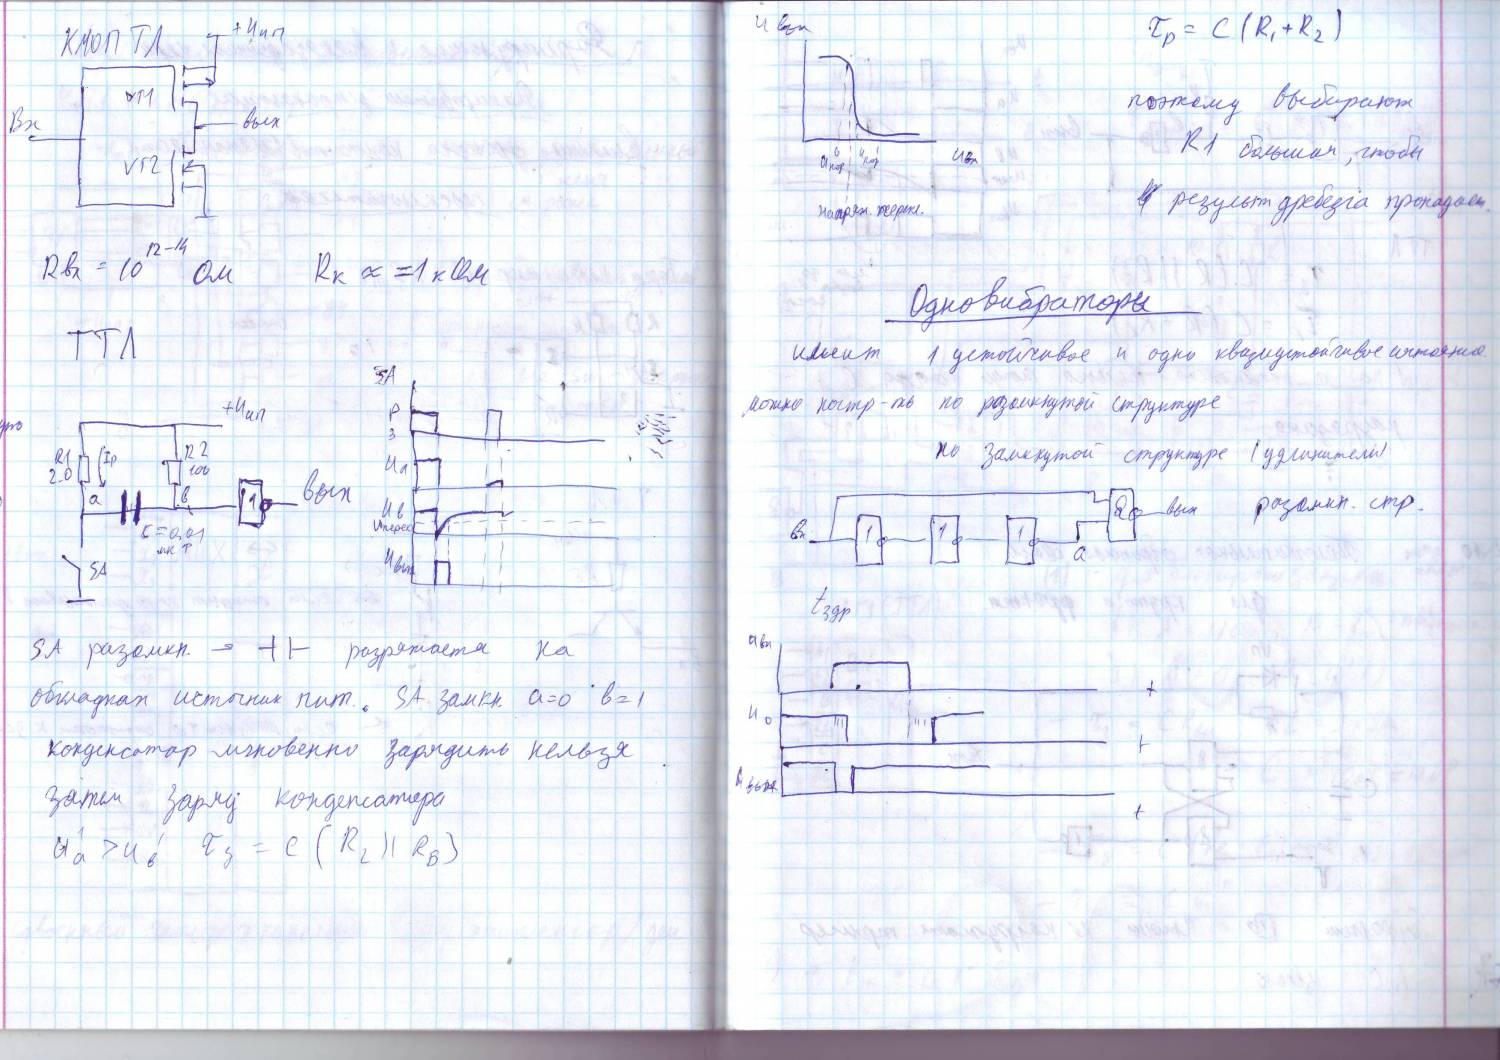 КМОП ТЛ
+Uип
VT1
Вх
вых
VT2
Rвх = 10^12-14 Ом
Rк ≈ = 1 кОм
ТТЛ
+Uип
R1
2.0
Iр
R2
100
a
в
1
Вых
C=0,01
мкF
SA
SA
Р
З
Uа
Uв
Uперек
Uвых
SA разомкн. → ⊣⊢ разряжается на
обкладках источник пит. SA замкн. a=0 в=1
конденсатор мгновенно зарядить нельзя
затем заряд конденсатора
Uа > Uв τз = C (R2 || RВ)
Uвых
Uпор
Uпор
Uвх
τр = C (R1 + R2)
поэтому выбирают
R1 большая, чтобы
результ дребезга пропадает.
Одновибраторы
имеит 1 устойчивое и одно квазиустойчивое
можно постр-ть по разомкнутой структуре
по замкнутой структуре (удлинители)
Вх
1
1
1
a
&
вых
разомкн. стр.
tздр
Uвх
t
U
t
Uвых
t